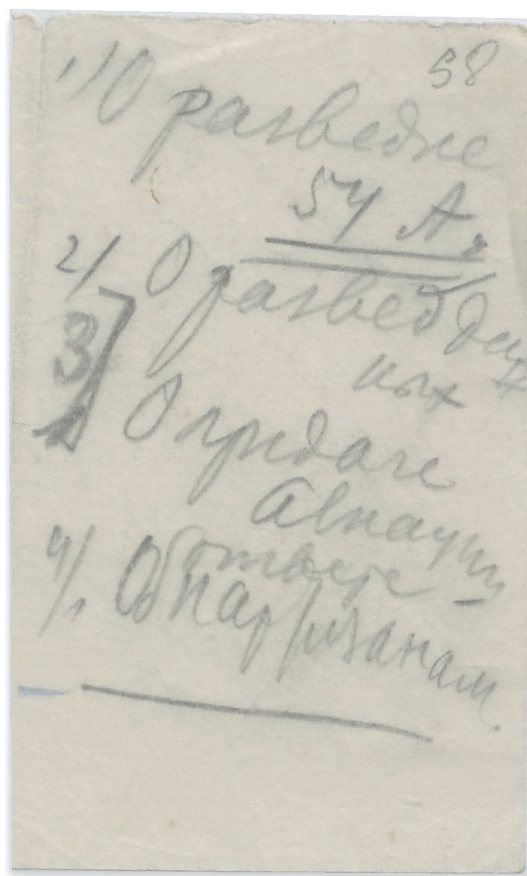 58
1) О разведке
54 А.
2) О разведдан
ных
3) О придаче
Авиации
4) Об ответе
партизанам.